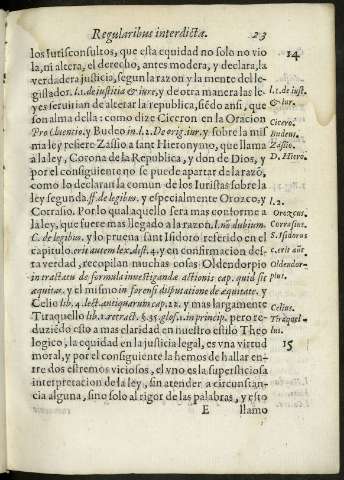 Regularibus interdictæ. 23
los Iurisconsultos, que esta equidad no solo no vio 14
la, ni altera, el derecho, antes modera, y declara, la
verdadera justicia, segun la razon y la mente del le-
gislador. l.1. de iustitia & iure, y de otra manera las le- l.1. de iust.
yes seruirian de alterar la republica, siẽdo ansi, que & iur.
son alma della: como dize Ciceron en la Oracion Cicero.
Pro Cluentio. y Budeo in.l.2. De orig. iur. y sobre la mis Budeus.
ma ley refiere Zassio a sant Hieronymo, que llama Zassio.
a la ley, Corona de la Republica, y don de Dios, y D. Hiero.
por el consiguiente no se puede apartar de la razõ,
como lo declaran la comun de los Iuristas sobre la
ley segunda. ff. de legibus. y especialmente Orozco, y l.2.
Corrasio. Por lo qual aquello sera mas conforme a Orozcus.
la ley, que fuere mas llegado a la razon. l. nõ dubium. Corrasius.
C. de legibus. y lo prueua sant Isidoro referido en el S. Isidorus
capitulo. erit autem lex. dist. 4. y en confirmacion des- c. erit aũt
ta verdad, recopilan muchas cosas Oldendorpio Oldendor-
in tractatu de formula inuestigandæ actionis cap. quid sit pius.
æquitas. y el mismo in forensi disputatione de æquitate. y
Celio lib. 4. lect. antiquarum cap. 22. y mas largamente Celius.
Tiraquello lib. 1. retract. §. 35. glos. 1. in princip. pero re- Tiraquel-
duziẽdo esto a mas claridad en nuestro estilo Theo lus.
logico, la equidad en la justicia legal, es vna virtud 15
moral, y por el consiguiente la hemos de hallar en-
tre dos estremos viciosos, el vno es la supersticiosa
interpretacion de la ley, sin atender a circunstan-
cia alguna, sino solo al rigor de las palabras, y esto
E llamo